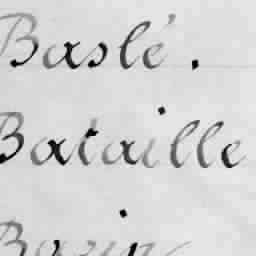 Baslé.
Bataille